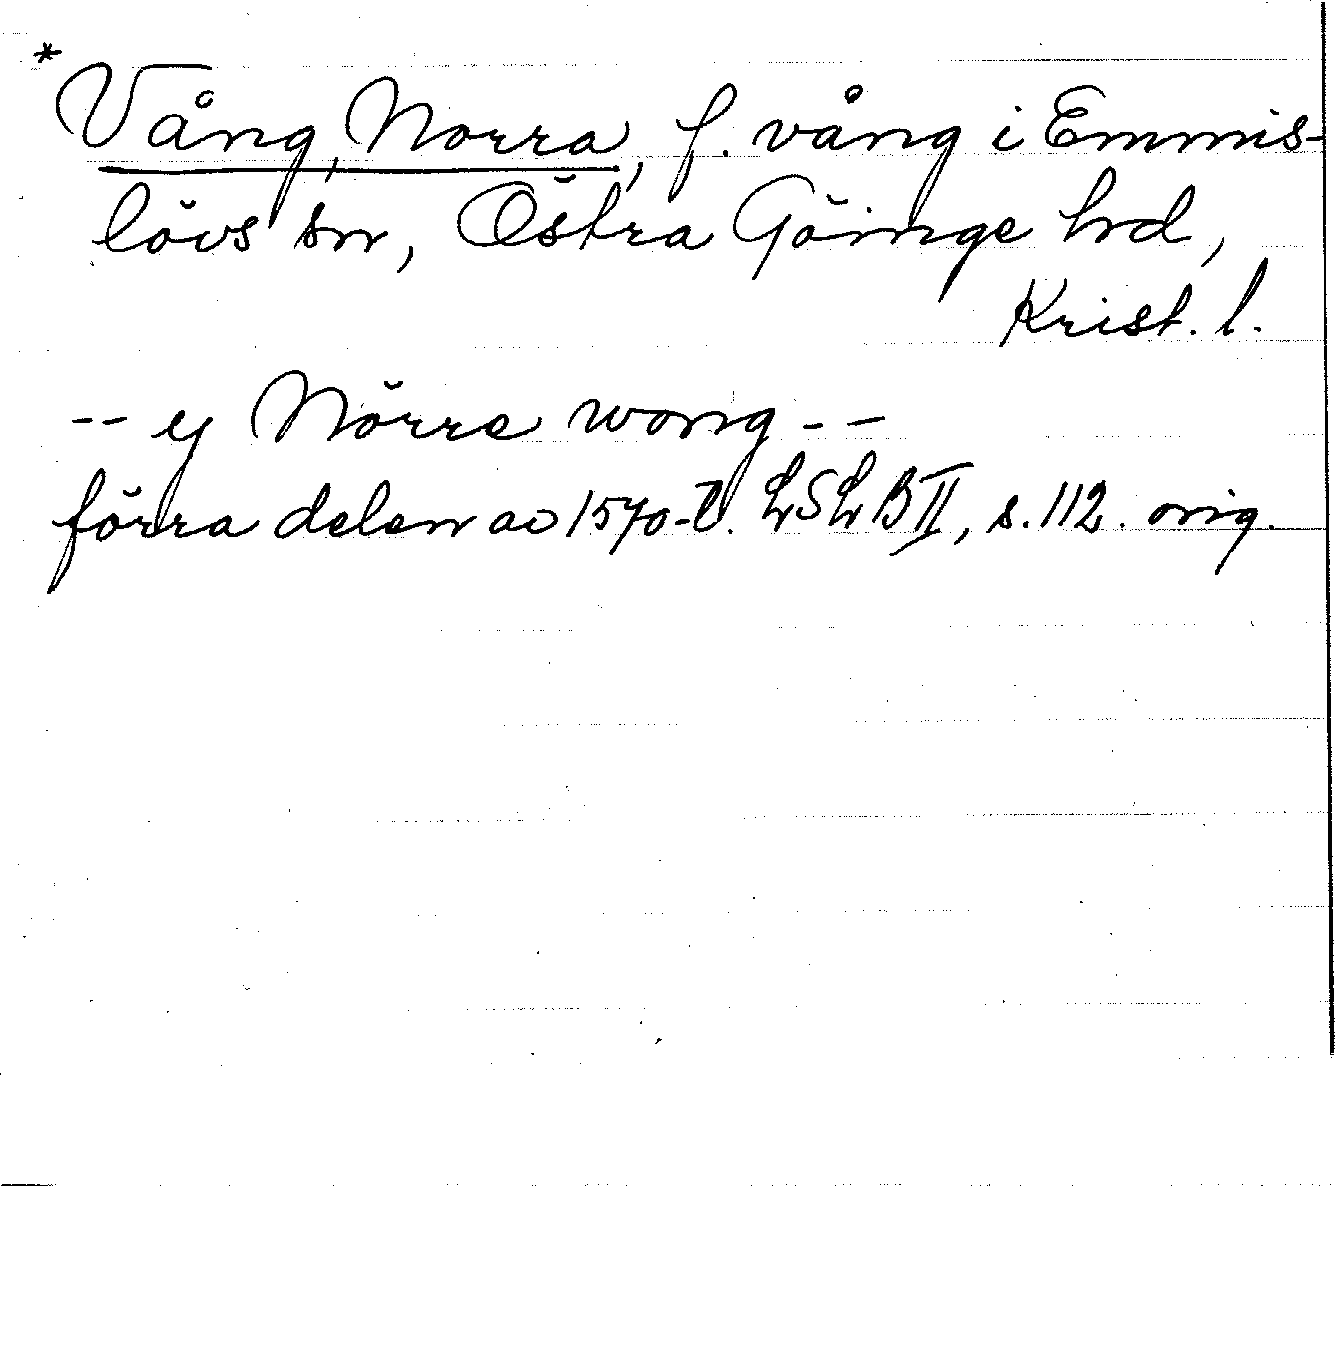 * Vång, Norra, f. vång i Emmis-
lövs sn, Östra Göinge hd,
Krist. l.
-- y Nörre wong --
förra delen av 1570-t. LSLB II, s. 112. orig.